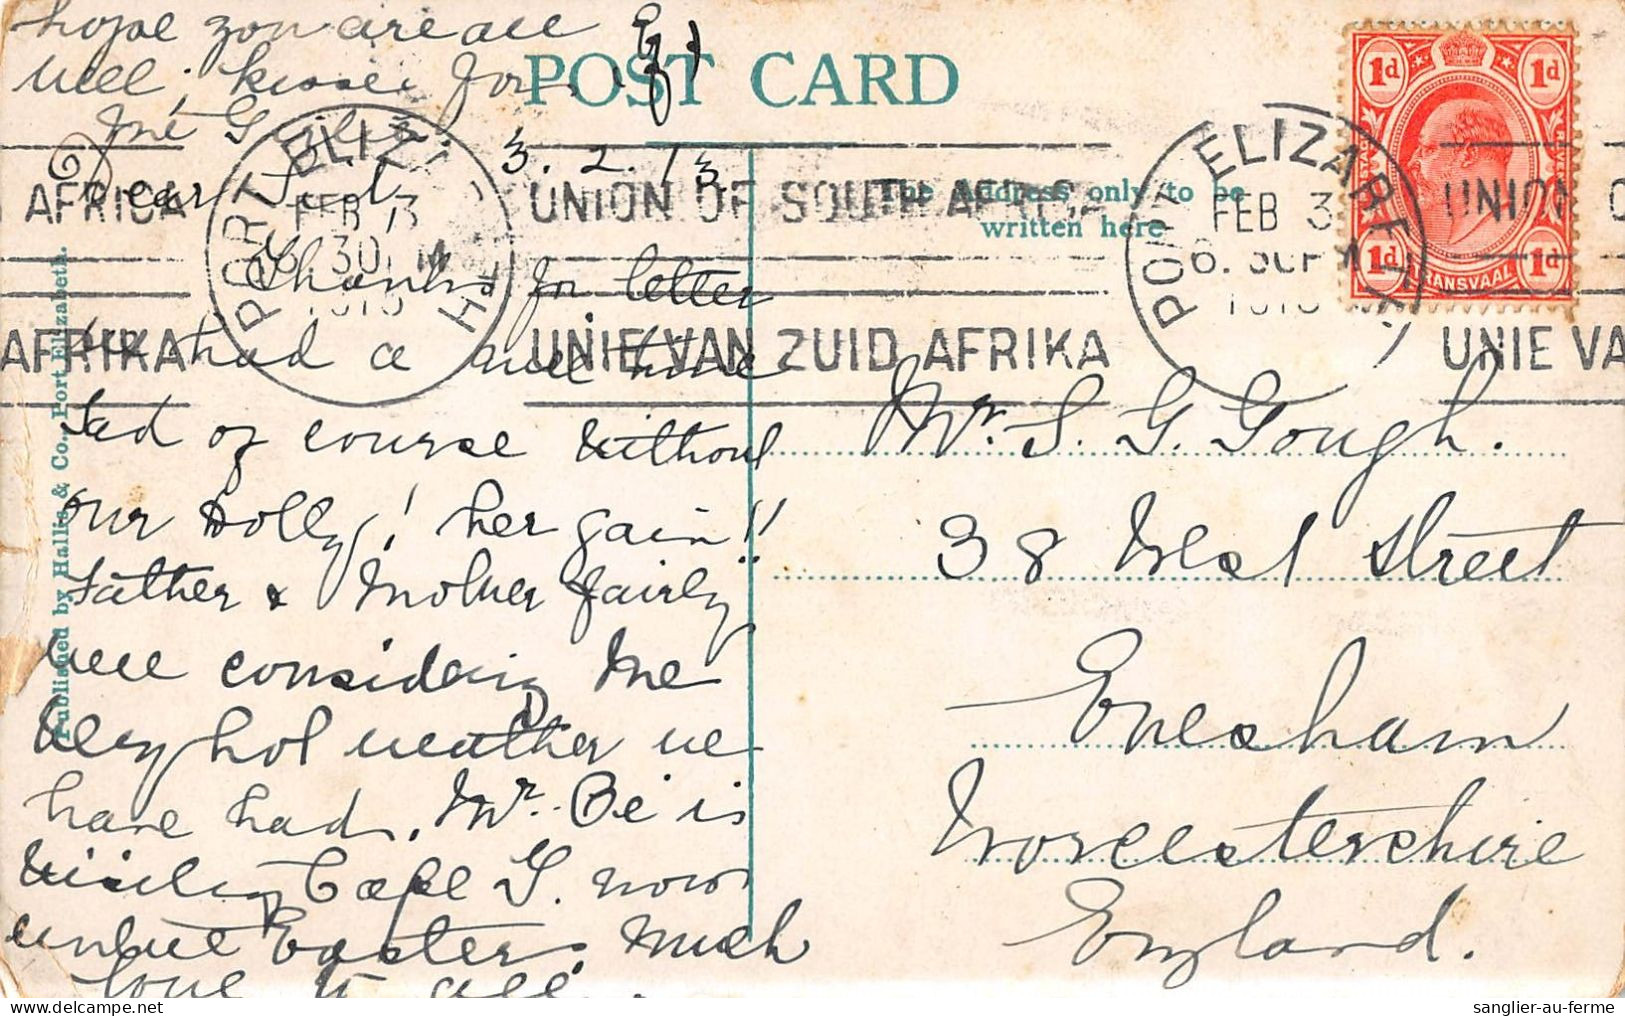 hope you are all
well, kisses for
POST CARD
3.2.13
AFRICA
PORT ELIZ
FEB 3
6 30
UNION OF SOUTH AFRICA
The address only to be
written here
PORT ELIZABETH
FEB 3
6.30 P
1d 1d
UNION O
1d TRANSVAAL 1d
Dear Syd
Thanks for letter
we had a nice time
AFRIKA
UNIE VAN ZUID AFRIKA
UNIE VA
sad of course without
our Dolly! her gain!!
Father & Mother fairly
well considering the
very hot weather we
have had. Mr. Be is
visiting Cape T. now
until Easter. Much
love to all.
Mr. S. G. Gough.
38 West Street
Evesham
Worcestershire
England.
Published by Hallis & Co., Port Elizabeth.
sanglier-au-ferme